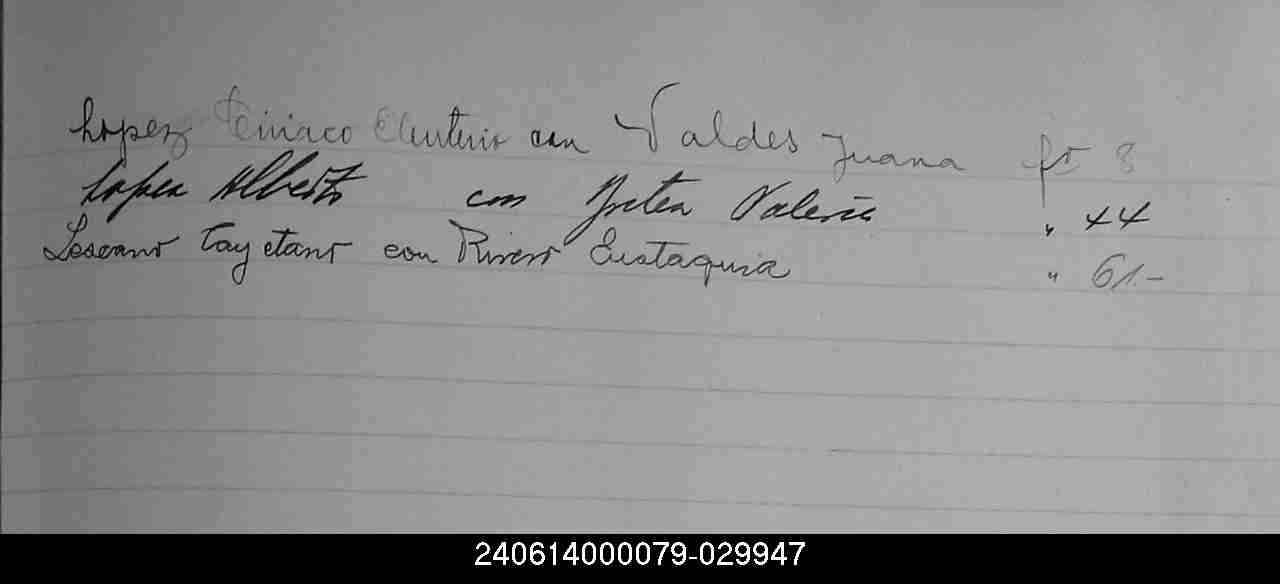 Lopez Ciriaco Eleuterio con Valdes Juana fo 8
Lopez Alberto con Valeria " 44
Lescano Cayetano con Rivero Eustaquia " 61-
240614000079-029947